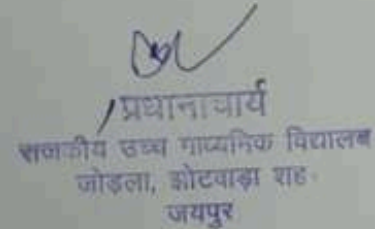 प्रधानाचार्य
राजकीय उच्च माध्यमिक विद्यालय
जोड़ला, झोटवाड़ा शह.
जयपुर